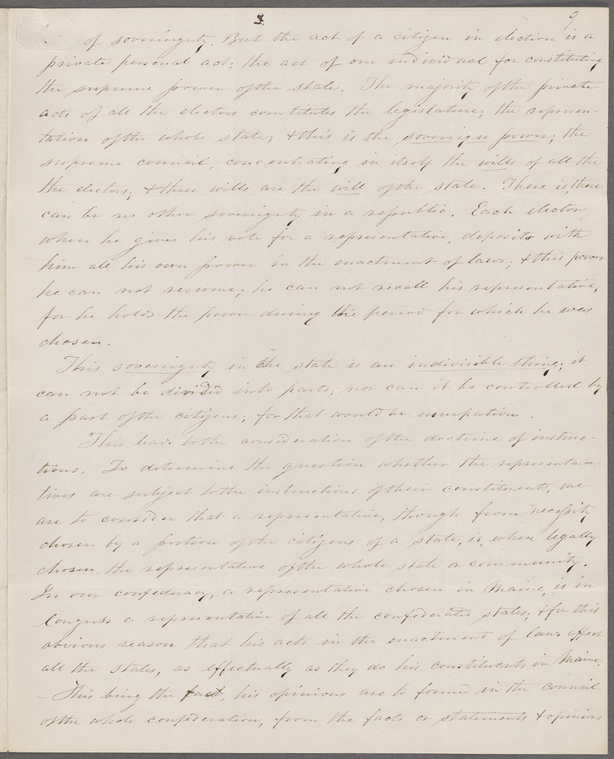 3 9
of soverignty. But the act of a citizen in election is a
private personal act; the act of one individual for constituting
the supreme power of the state. The majority of the private
acts of all the electors constitutes the legislature, the represen-
tation of the whole state; & this is the soverign power; the
supreme council, concentrating in itself the wills of all the
the electors, & these wills are the will of the state. There is & there
can be no other soverignty in a republic. Each elector
when he gives his vote for a representative, deposits with
him all his own power in the enactment of laws; & this power
he can not resume; he can not recall his representative,
for he holds the power during the period for which he was
chosen.
This soverignty in the state is an indivisible thing; it
can not be divided into parts, nor can it be controlled by
a part of the citizens; for that would be usurpation.
This leads to the consideration of the doctrine of instruc-
tions. To determine the question whether the representa-
tives are subject to the instructions of their constituents, we
are to consider that a representative, though from necessity
chosen by a portion of the citizens of a state, is, when legally
chosen, the representative of the whole state or community.
In our confederacy, a representative chosen in Maine, is in
Congress a representative of all the confederated states; & for this
obvious reason that his acts in the enactment of laws affect
all the states, as effectually as they do his constituents in Maine.
— This being the fact, his opinions are to formed in the council
of the whole confederation, from the facts or statements & opinions